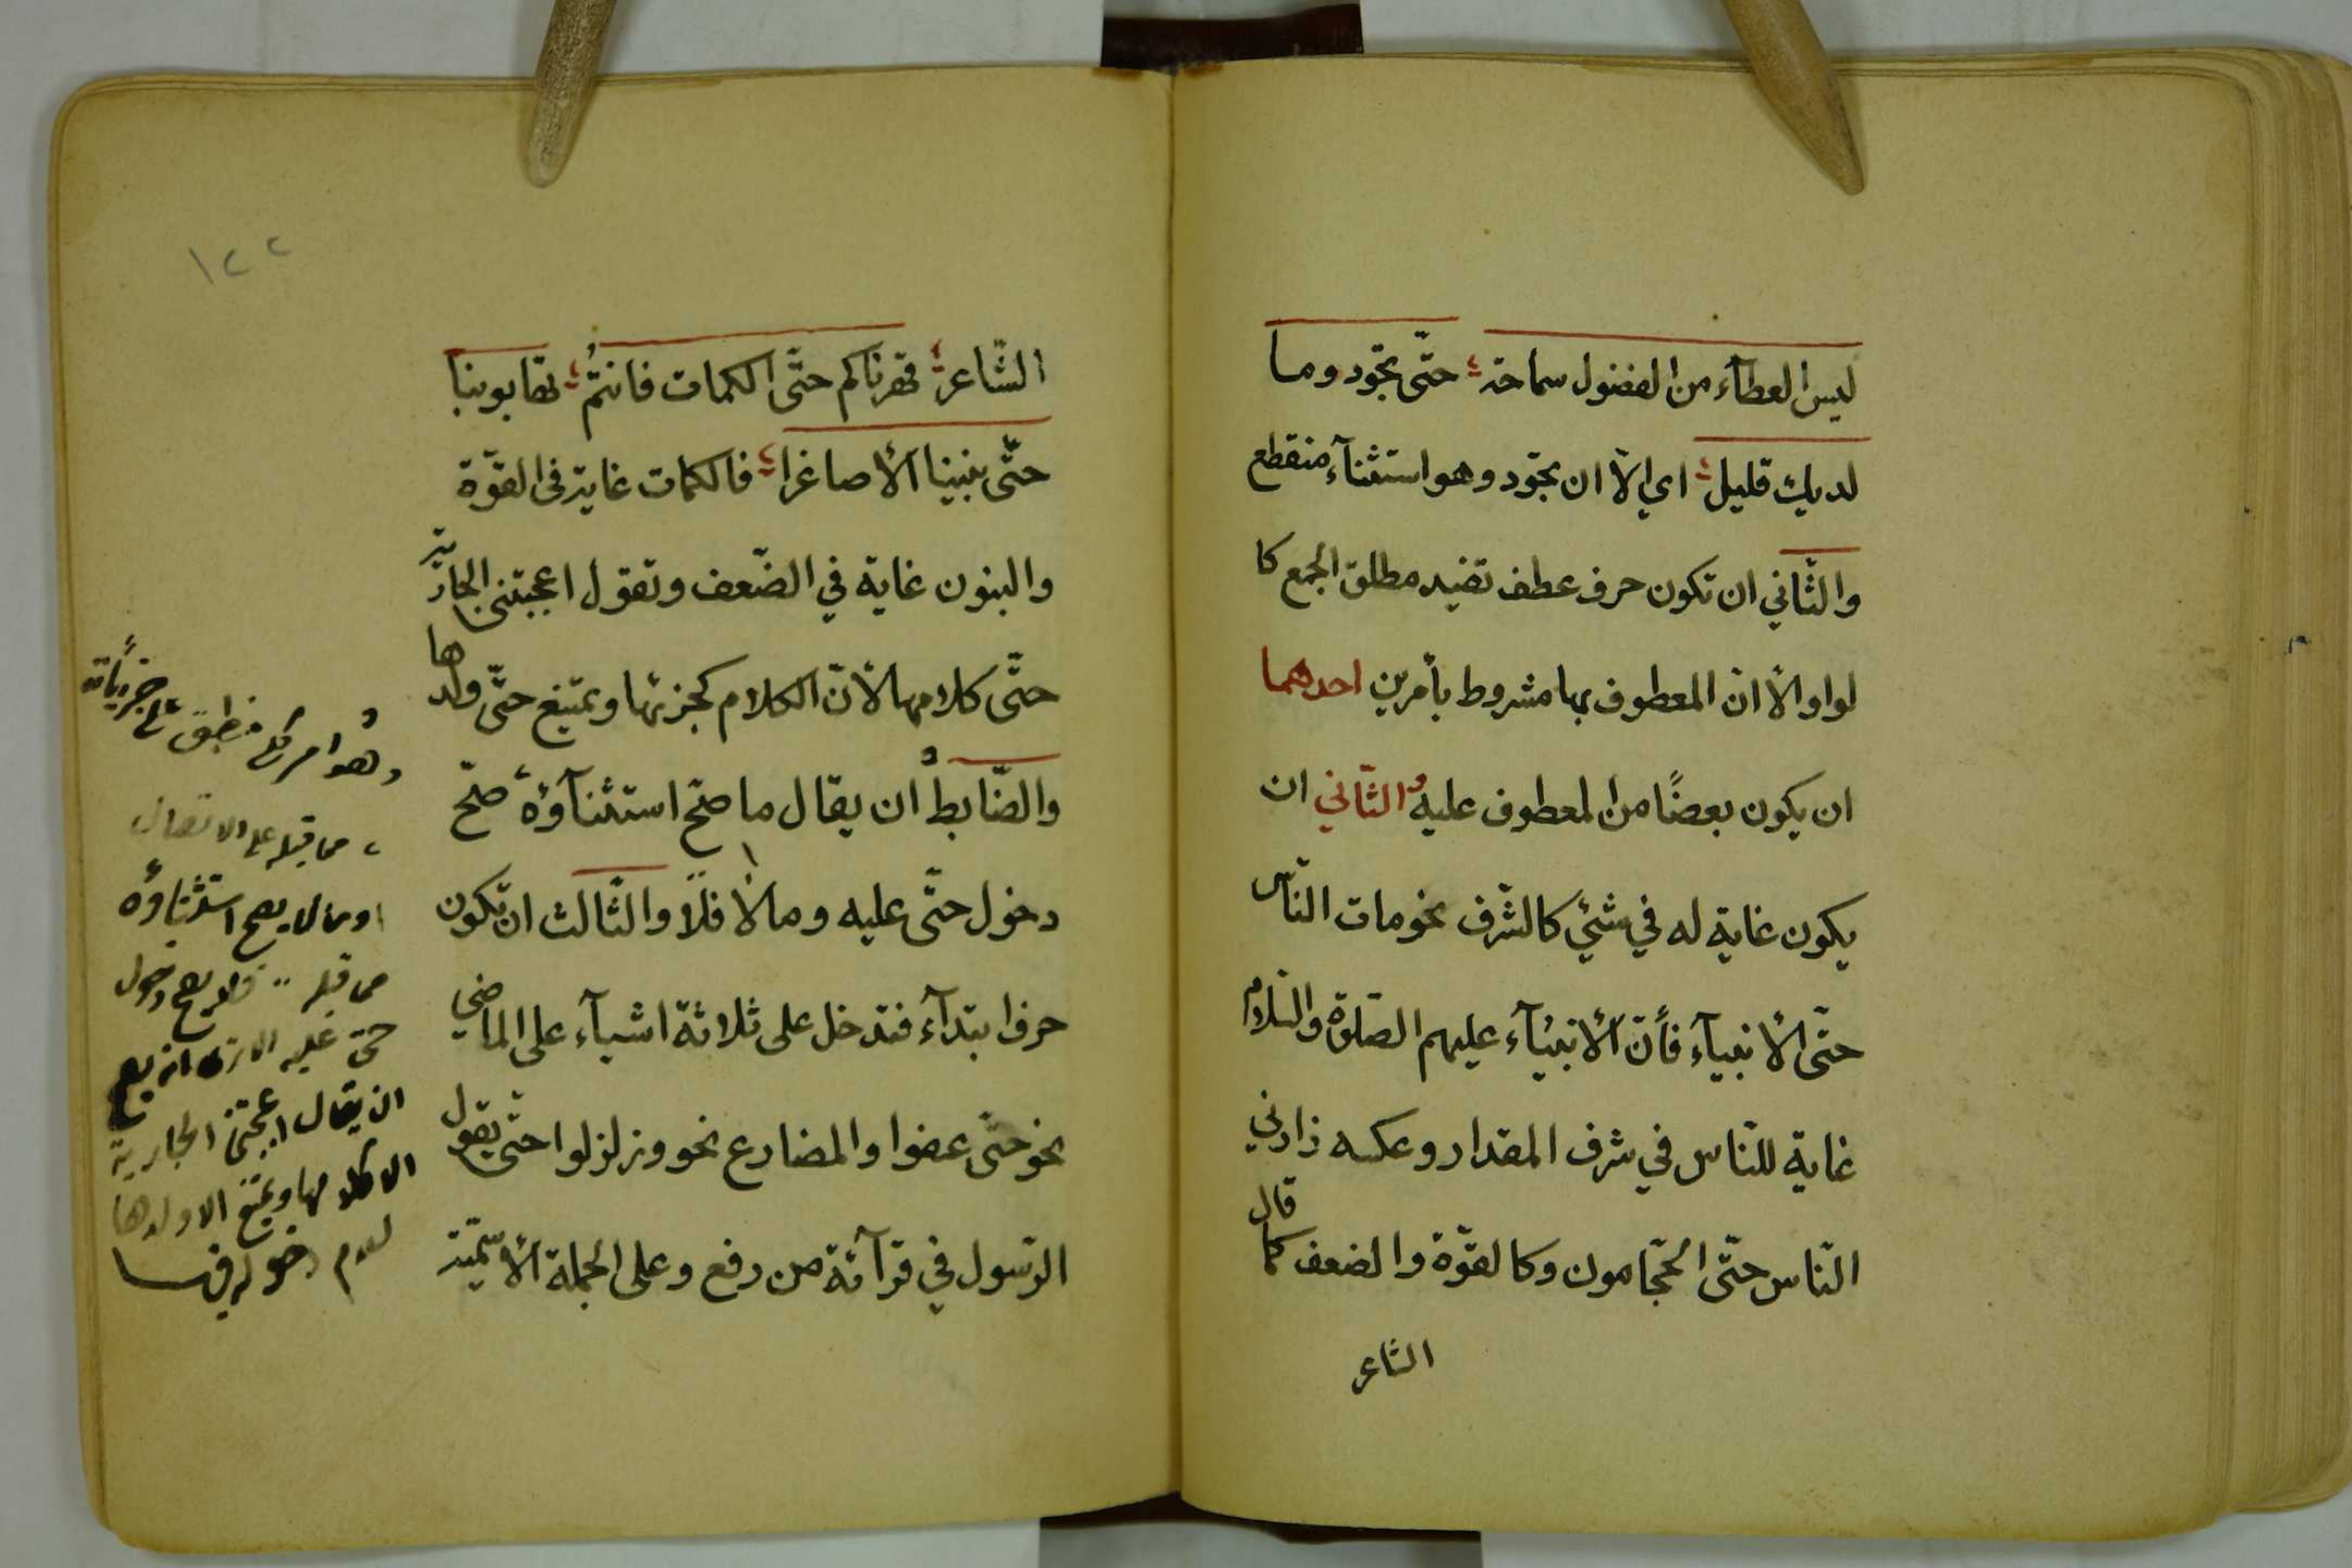 ليس العطآء من الفضول سماحة حتّى تجود وما
لديك قليل اي الّا ان تجود وهو استثنآء منقطع
والثّاني ان تكون حرف عطف تفيد مطلق الجمع كا
لواو الّا انّ المعطوف بها مشروط بأمرين احدهما
ان يكون بعضًا من المعطوف عليه والثّاني ان
يكون غاية له في شئي كالشّرف نحو مات النّاس
حتّى الأنبيآء فأنّ الأنبيآء عليهم الصّلوة والسّلام
غاية للنّاس في شرف المقدار وعكسه زادني
النّاس حتّى الحجّامون وكالقوّة والضعف كما قال
الشاعر
١٢٢
الشّاعر قهرناكم حتّى الكمات فانتمُ تهابوننا
حتّى بنينا الأصاغرا فالكمات غاية في القوّة
والبنون غاية في الضّعف وتقول اعجبتني الجارية
حتّى كلامها لأنّ الكلام كجزئها ويمتنع حتّى ولدها
والضّابط ان يقال ما صحّ استثنآؤه صحّ
دخول حتّى عليه وما لا فلا والثّالث ان تكون
حرف ابتدآء فتدخل على ثلاثة اشيآء على الماضي
نحو حتّى عفوا والمضارع نحو وزلزلوا حتّى يقول
الرّسول في قرآئة من رفع وعلى الجملة الأسّميّة
وهو امر كلي منطبق على جزئياته
مما قبله على الاتصال
او ما لا يصح استثناؤه
مما قبله فلا يصح دخول
حتى عليه الا ترى انه يصح
ان يقال اعجبتني الجارية
الا كلامها ويمتنع الا ولدها
لعدم دخوله فيها